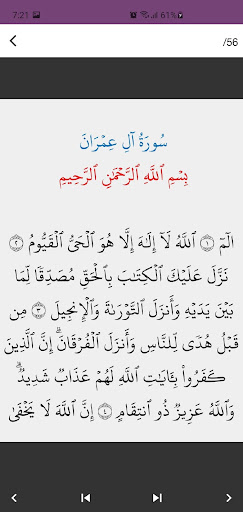 7:21 61%
/56
سُورَةُ آلِ عِمْرَانَ
بِسْمِ ٱللَّهِ ٱلرَّحْمَٰنِ ٱلرَّحِيمِ
الٓمٓ ۝١ ٱللَّهُ لَآ إِلَٰهَ إِلَّا هُوَ ٱلْحَىُّ ٱلْقَيُّومُ ۝٢
نَزَّلَ عَلَيْكَ ٱلْكِتَٰبَ بِٱلْحَقِّ مُصَدِّقًا لِّمَا
بَيْنَ يَدَيْهِ وَأَنزَلَ ٱلتَّوْرَىٰةَ وَٱلْإِنجِيلَ ۝٣ مِن
قَبْلُ هُدًى لِّلنَّاسِ وَأَنزَلَ ٱلْفُرْقَانَ ۗ إِنَّ ٱلَّذِينَ
كَفَرُوا۟ بِـَٔايَٰتِ ٱللَّهِ لَهُمْ عَذَابٌ شَدِيدٌ ۗ
وَٱللَّهُ عَزِيزٌ ذُو ٱنتِقَامٍ ۝٤ إِنَّ ٱللَّهَ لَا يَخْفَىٰ